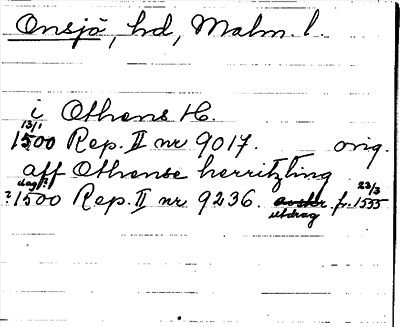 Onsjö, hd, Malm. l.
i Othens H.
13/1
1500 Rep. II nr 9017. orig.
aff Othense herritzting
dag?
?1500 Rep. II nr 9236. avskr. utdrag fr. 23/3 1555